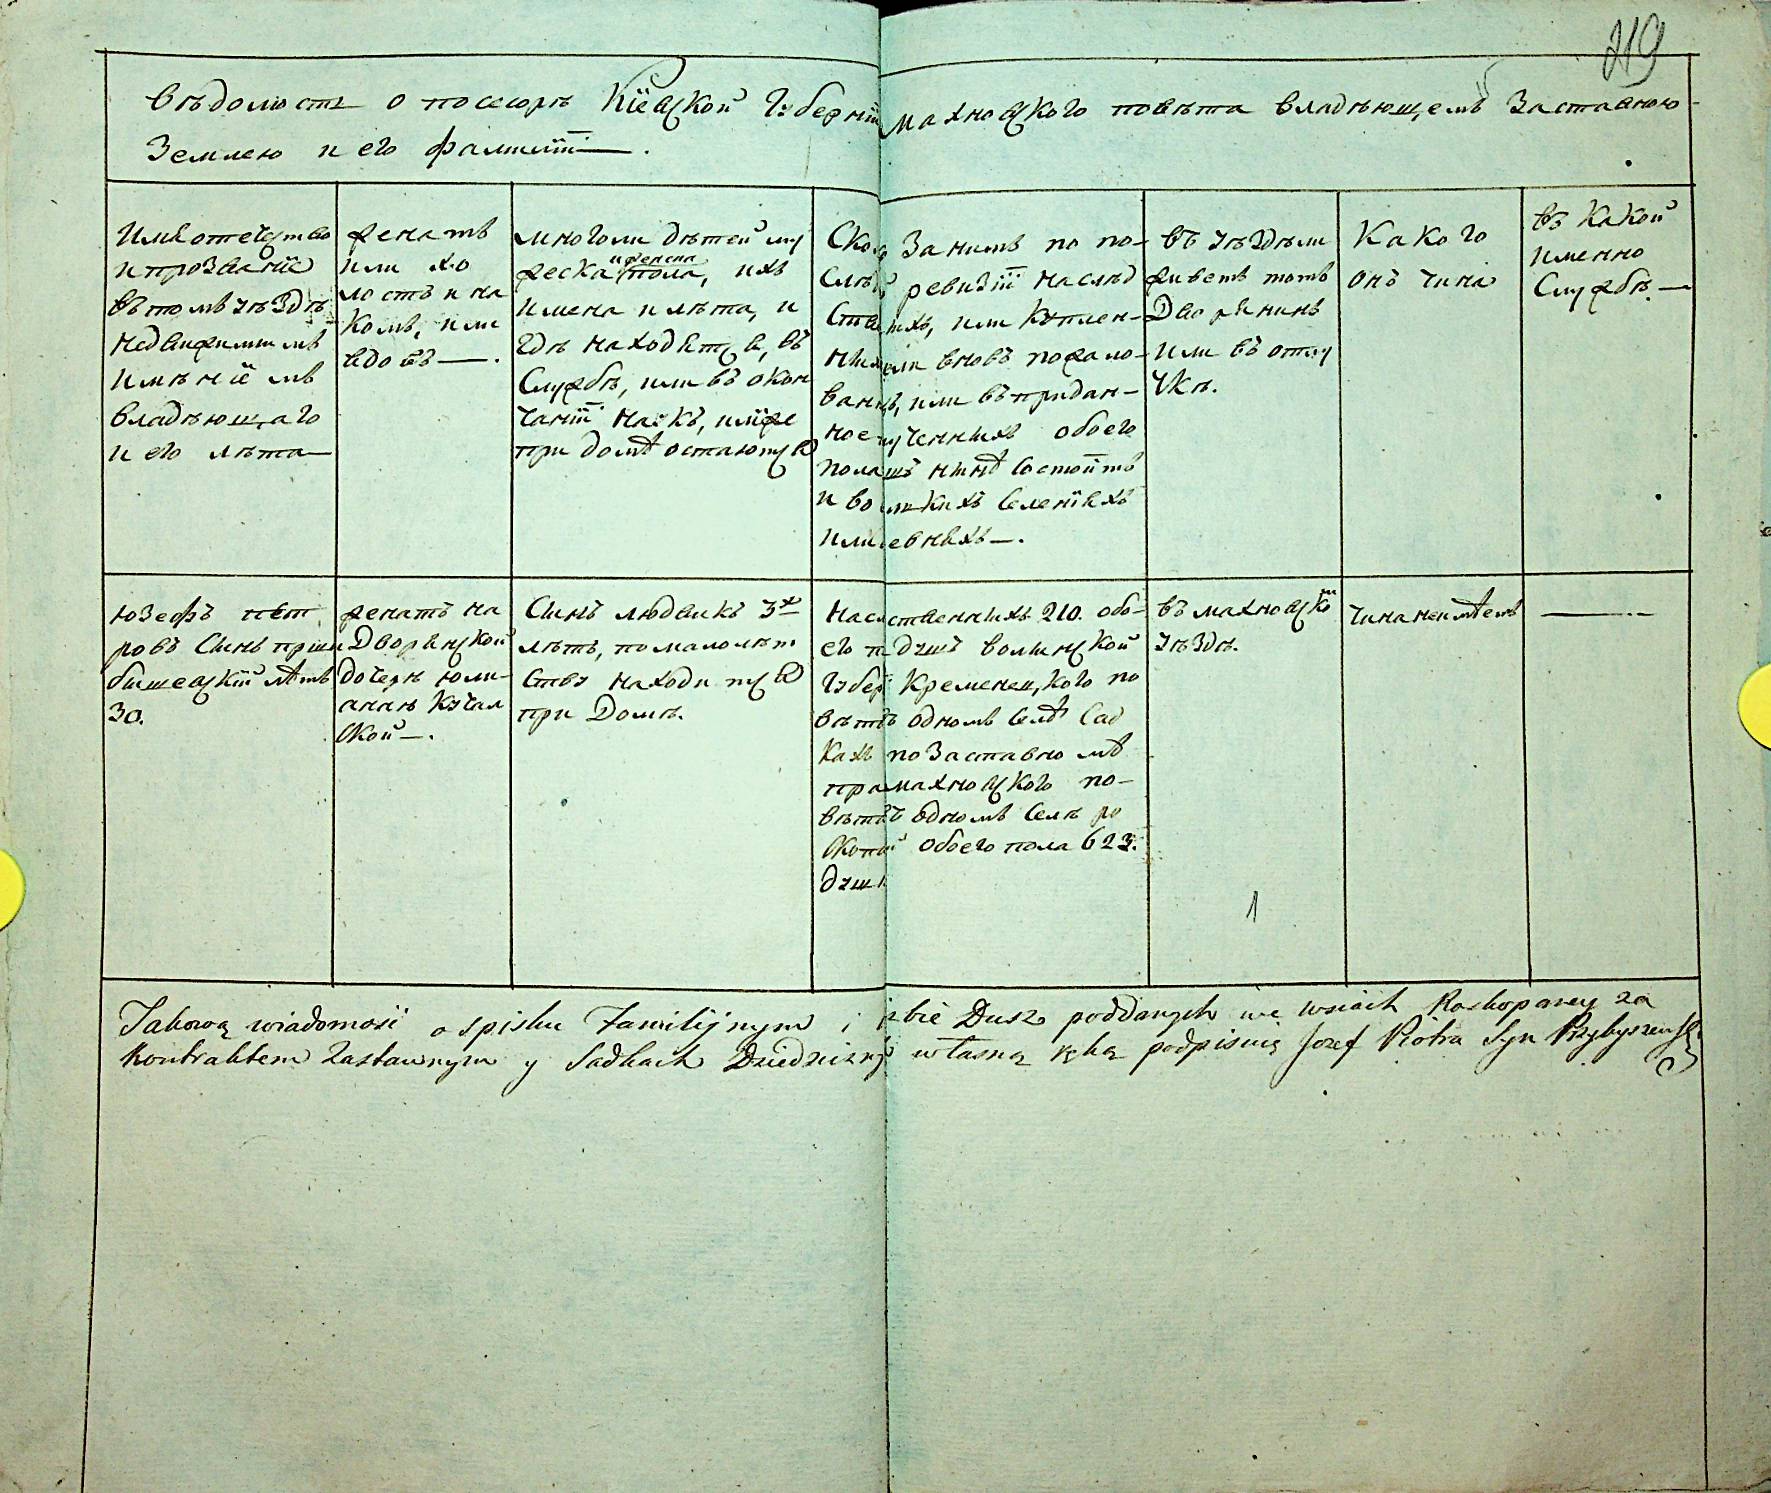 219
Вѣдомость о посесорѣ Кіевской Губерніи Махновского повѣта владѣющемъ Заставною
Землею и его фамиліи.
Имя отечество
и прозваніе
въ томъ уѣздѣ
недвижимимъ
имѣніемъ
владѣющаго
и его лѣта
женатъ
или хо
лостъ и на
комъ, или
вдовъ.
много ли дѣтей му
жеска и женска пола, ихъ
имена и лѣта, и
гдѣ находятся, въ
Службѣ, или въ окон
чаніи наукъ, или же
при домѣ остаются
Ско За нимъ по по-
Слѣд ревизіи наслѣд
Ств ихъ, или куплен-
них или вновь пожало-
ван или въ придан-
ное ученнихъ обоего
пола нинѣ Состоитъ
и во кихъ Селеніяхъ
или евняхъ.
въ уѣздѣ ли
живетъ тотъ
Дворянинъ
или въ отпу
ѱкѣ.
Какого
онъ чина
въ какой
именно
Службѣ.
Юзефъ Пет
ровъ Синъ Пржи
бишевскій лѣтъ
30.
женатъ на
Дворянской
дочерѣ Юли-
аннѣ Кучал
ской.
Синъ Людвикъ 3х
лѣтъ, по малолѣт
Ству находится
при Домѣ.
Нас ственнихъ 210. обо-
его п душъ Волинской
Губер Кременецкого по
вѣт одномъ Селѣ Сад
кахъ по Заставно мѣ
пра Махновского по-
вѣт одномъ Селѣ Ро
скопа обоего пола 623.
душ
въ Махновском
уѣздѣ.
чина неимѣетъ
1
Takową wiadomość o spisku Familijnym i zbie Dusz poddanych we wsiach Roskopaney za
Kontraktem Zastawnym y Sadkach Dziedziczny własną ręką podpisuię Jozef Piotra Syn Przybyszewski